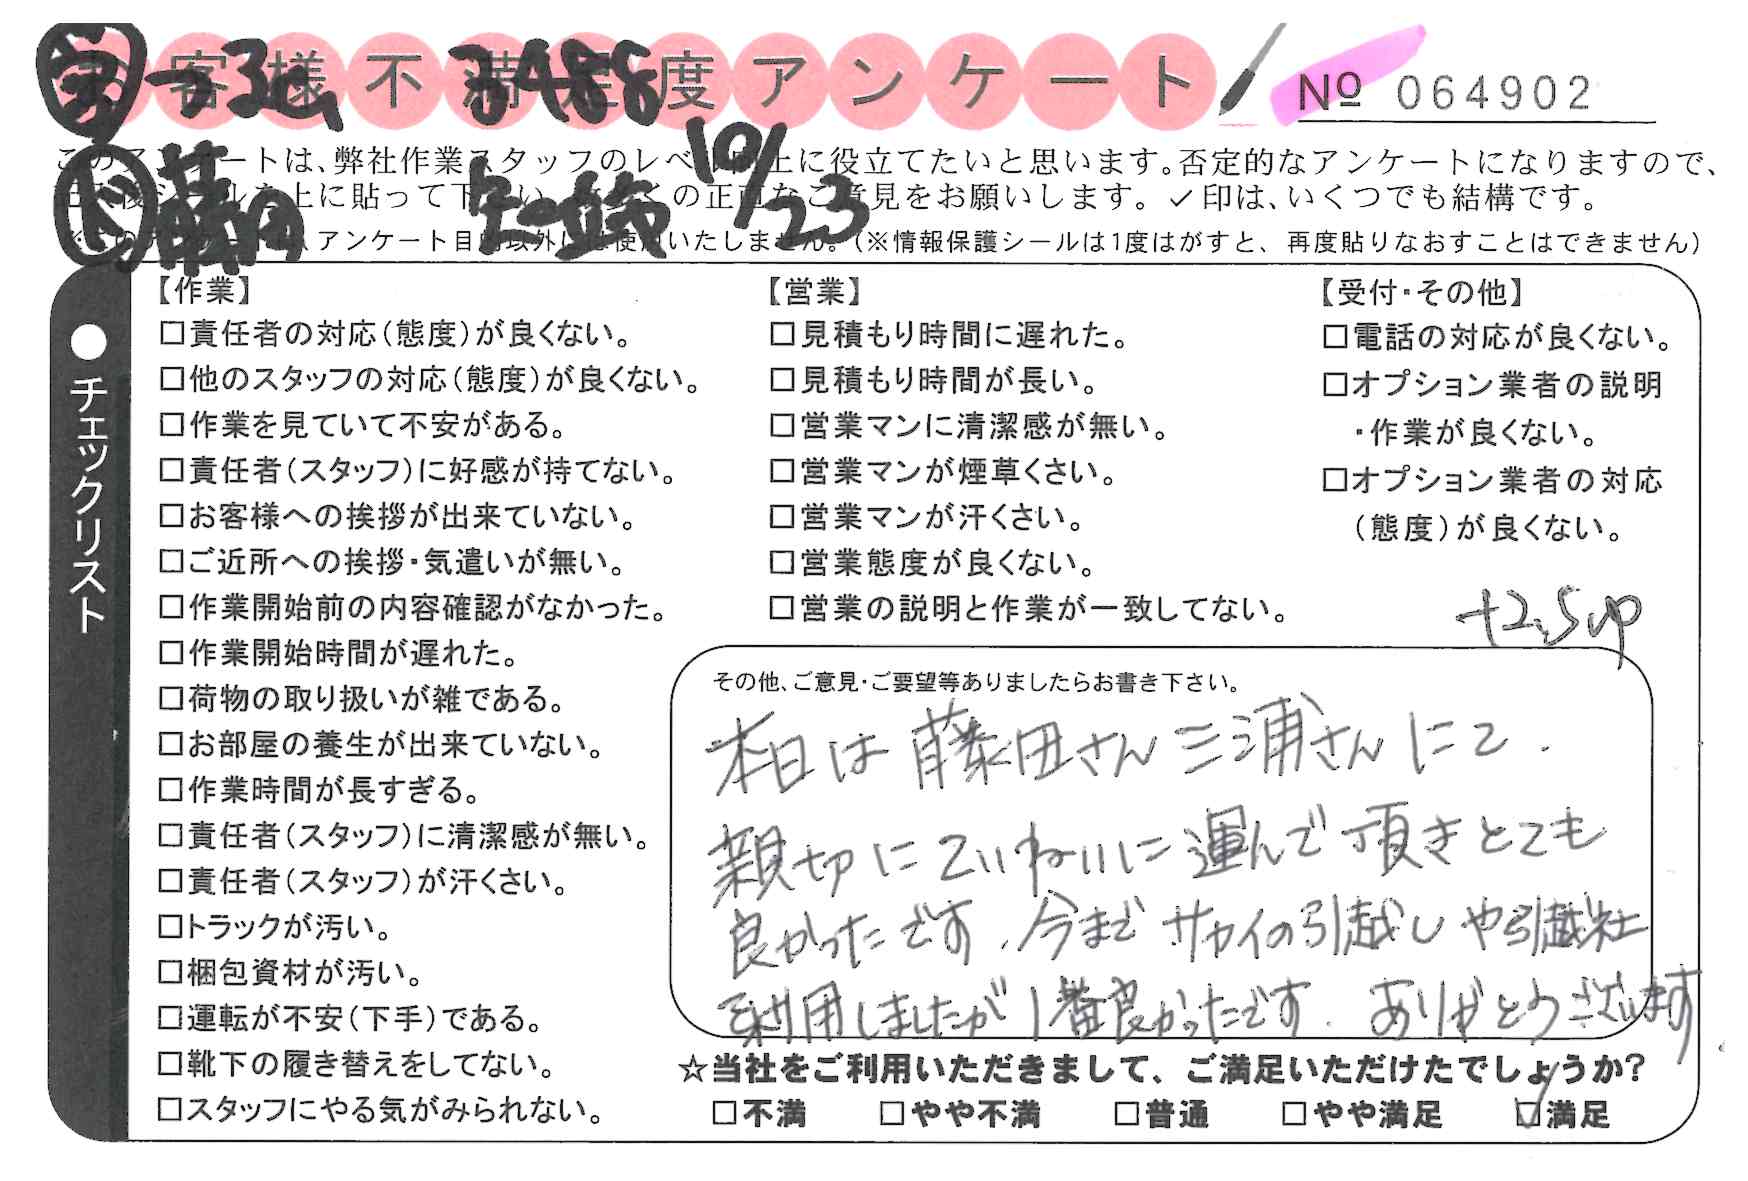 お客様不満足度アンケート
3488
No 064902
10/23
このアンケートは、弊社作業スタッフのレベル向上に役立てたいと思います。否定的なアンケートになりますので、
上に貼って下さい の正直なご意見をお願いします。✓印は、いくつでも結構です。
※このアンケートは、アンケート目的以外には使用いたしません。(※情報保護シールは1度はがすと、再度貼りなおすことはできません)
●チェックリスト
【作業】
□責任者の対応(態度)が良くない。
□他のスタッフの対応(態度)が良くない。
□作業を見ていて不安がある。
□責任者(スタッフ)に好感が持てない。
□お客様への挨拶が出来ていない。
□ご近所への挨拶・気遣いが無い。
□作業開始前の内容確認がなかった。
□作業開始時間が遅れた。
□荷物の取り扱いが雑である。
□お部屋の養生が出来ていない。
□作業時間が長すぎる。
□責任者(スタッフ)に清潔感が無い。
□責任者(スタッフ)が汗くさい。
□トラックが汚い。
□梱包資材が汚い。
□運転が不安(下手)である。
□靴下の履き替えをしてない。
□スタッフにやる気がみられない。
【営業】
□見積もり時間に遅れた。
□見積もり時間が長い。
□営業マンに清潔感が無い。
□営業マンが煙草くさい。
□営業マンが汗くさい。
□営業態度が良くない。
□営業の説明と作業が一致してない。
【受付・その他】
□電話の対応が良くない。
□オプション業者の説明
・作業が良くない。
□オプション業者の対応
(態度)が良くない。
+2.5up
その他、ご意見・ご要望等ありましたらお書き下さい。
本日は藤田さん三浦さんにて、
親切にていねいに運んで頂きとても
良かったです。今までサカイの引越しや引越社
利用しましたが1番良かったです。ありがとうございます
☆当社をご利用いただきまして、ご満足いただけたでしょうか?
□不満 □やや不満 □普通 □やや満足 ☑満足